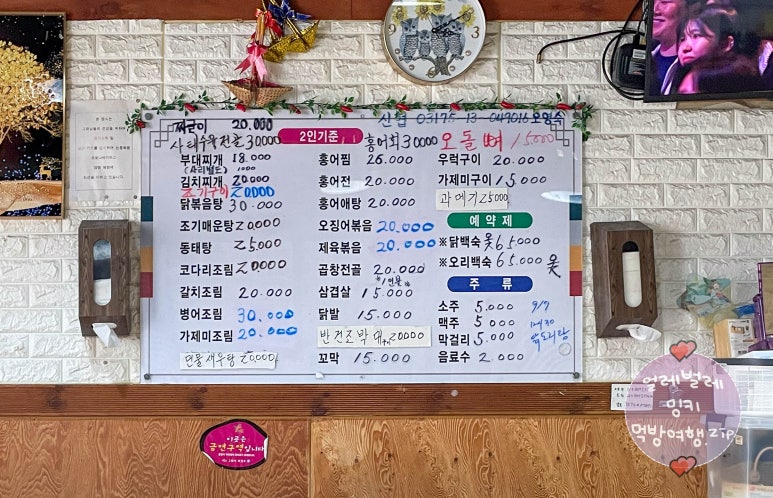 신협 03175-13-047016 오영숙
짜글이 20.000
사태수육전골 30000
2인기준
홍어회 30000
오돌뼈 15000
부대찌개 18.000
(사리별도) 1000
김치찌개 20000
조기구이 20000
닭볶음탕 30.000
조기매운탕 20000
동태탕 25000
코다리조림 20000
갈치조림 20.000
병어조림 30.000
가제미조림 20.000
민물새우탕 20000
홍어찜 26.000
홍어전 20.000
홍어애탕 20.000
오징어볶음 20.000
제육볶음 20.000
곱창전골 20.000
삼겹살 15.000
닭발 15.000
반건조박대 20000
꼬막 15.000
우럭구이 20.000
가제미구이 15.000
과메기 25000
예약제
※닭백숙 옻 65000
※오리백숙 65.000 옻
주류
소주 5.000
맥주 5.000
막걸리 5.000
음료수 2.000
이곳은
금연구역입니다
얼레벌레
밍키
먹방여행.zip